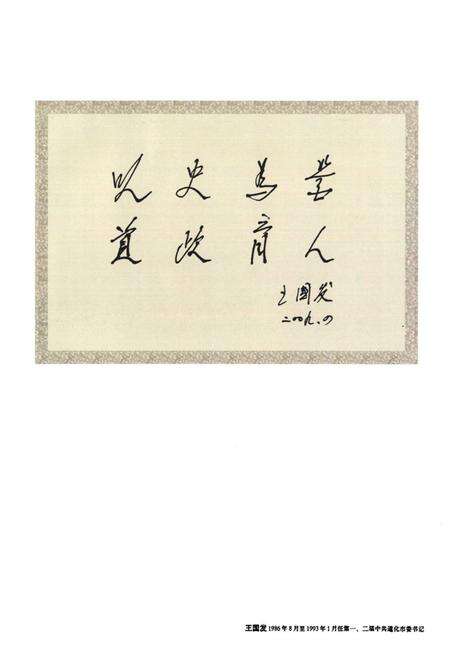 以史为鉴
資政育人
王國发
二00九.四
王国发 1986年8月至1993年1月任第一、二届中共通化市委书记